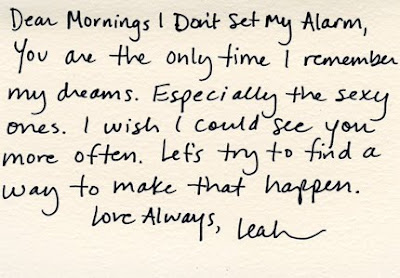 Dear Mornings I Don't Set My Alarm,
You are the only time I remember
my dreams. Especially the sexy
ones. I wish I could see you
more often. Let's try to find a
way to make that happen.
Love Always, Leah